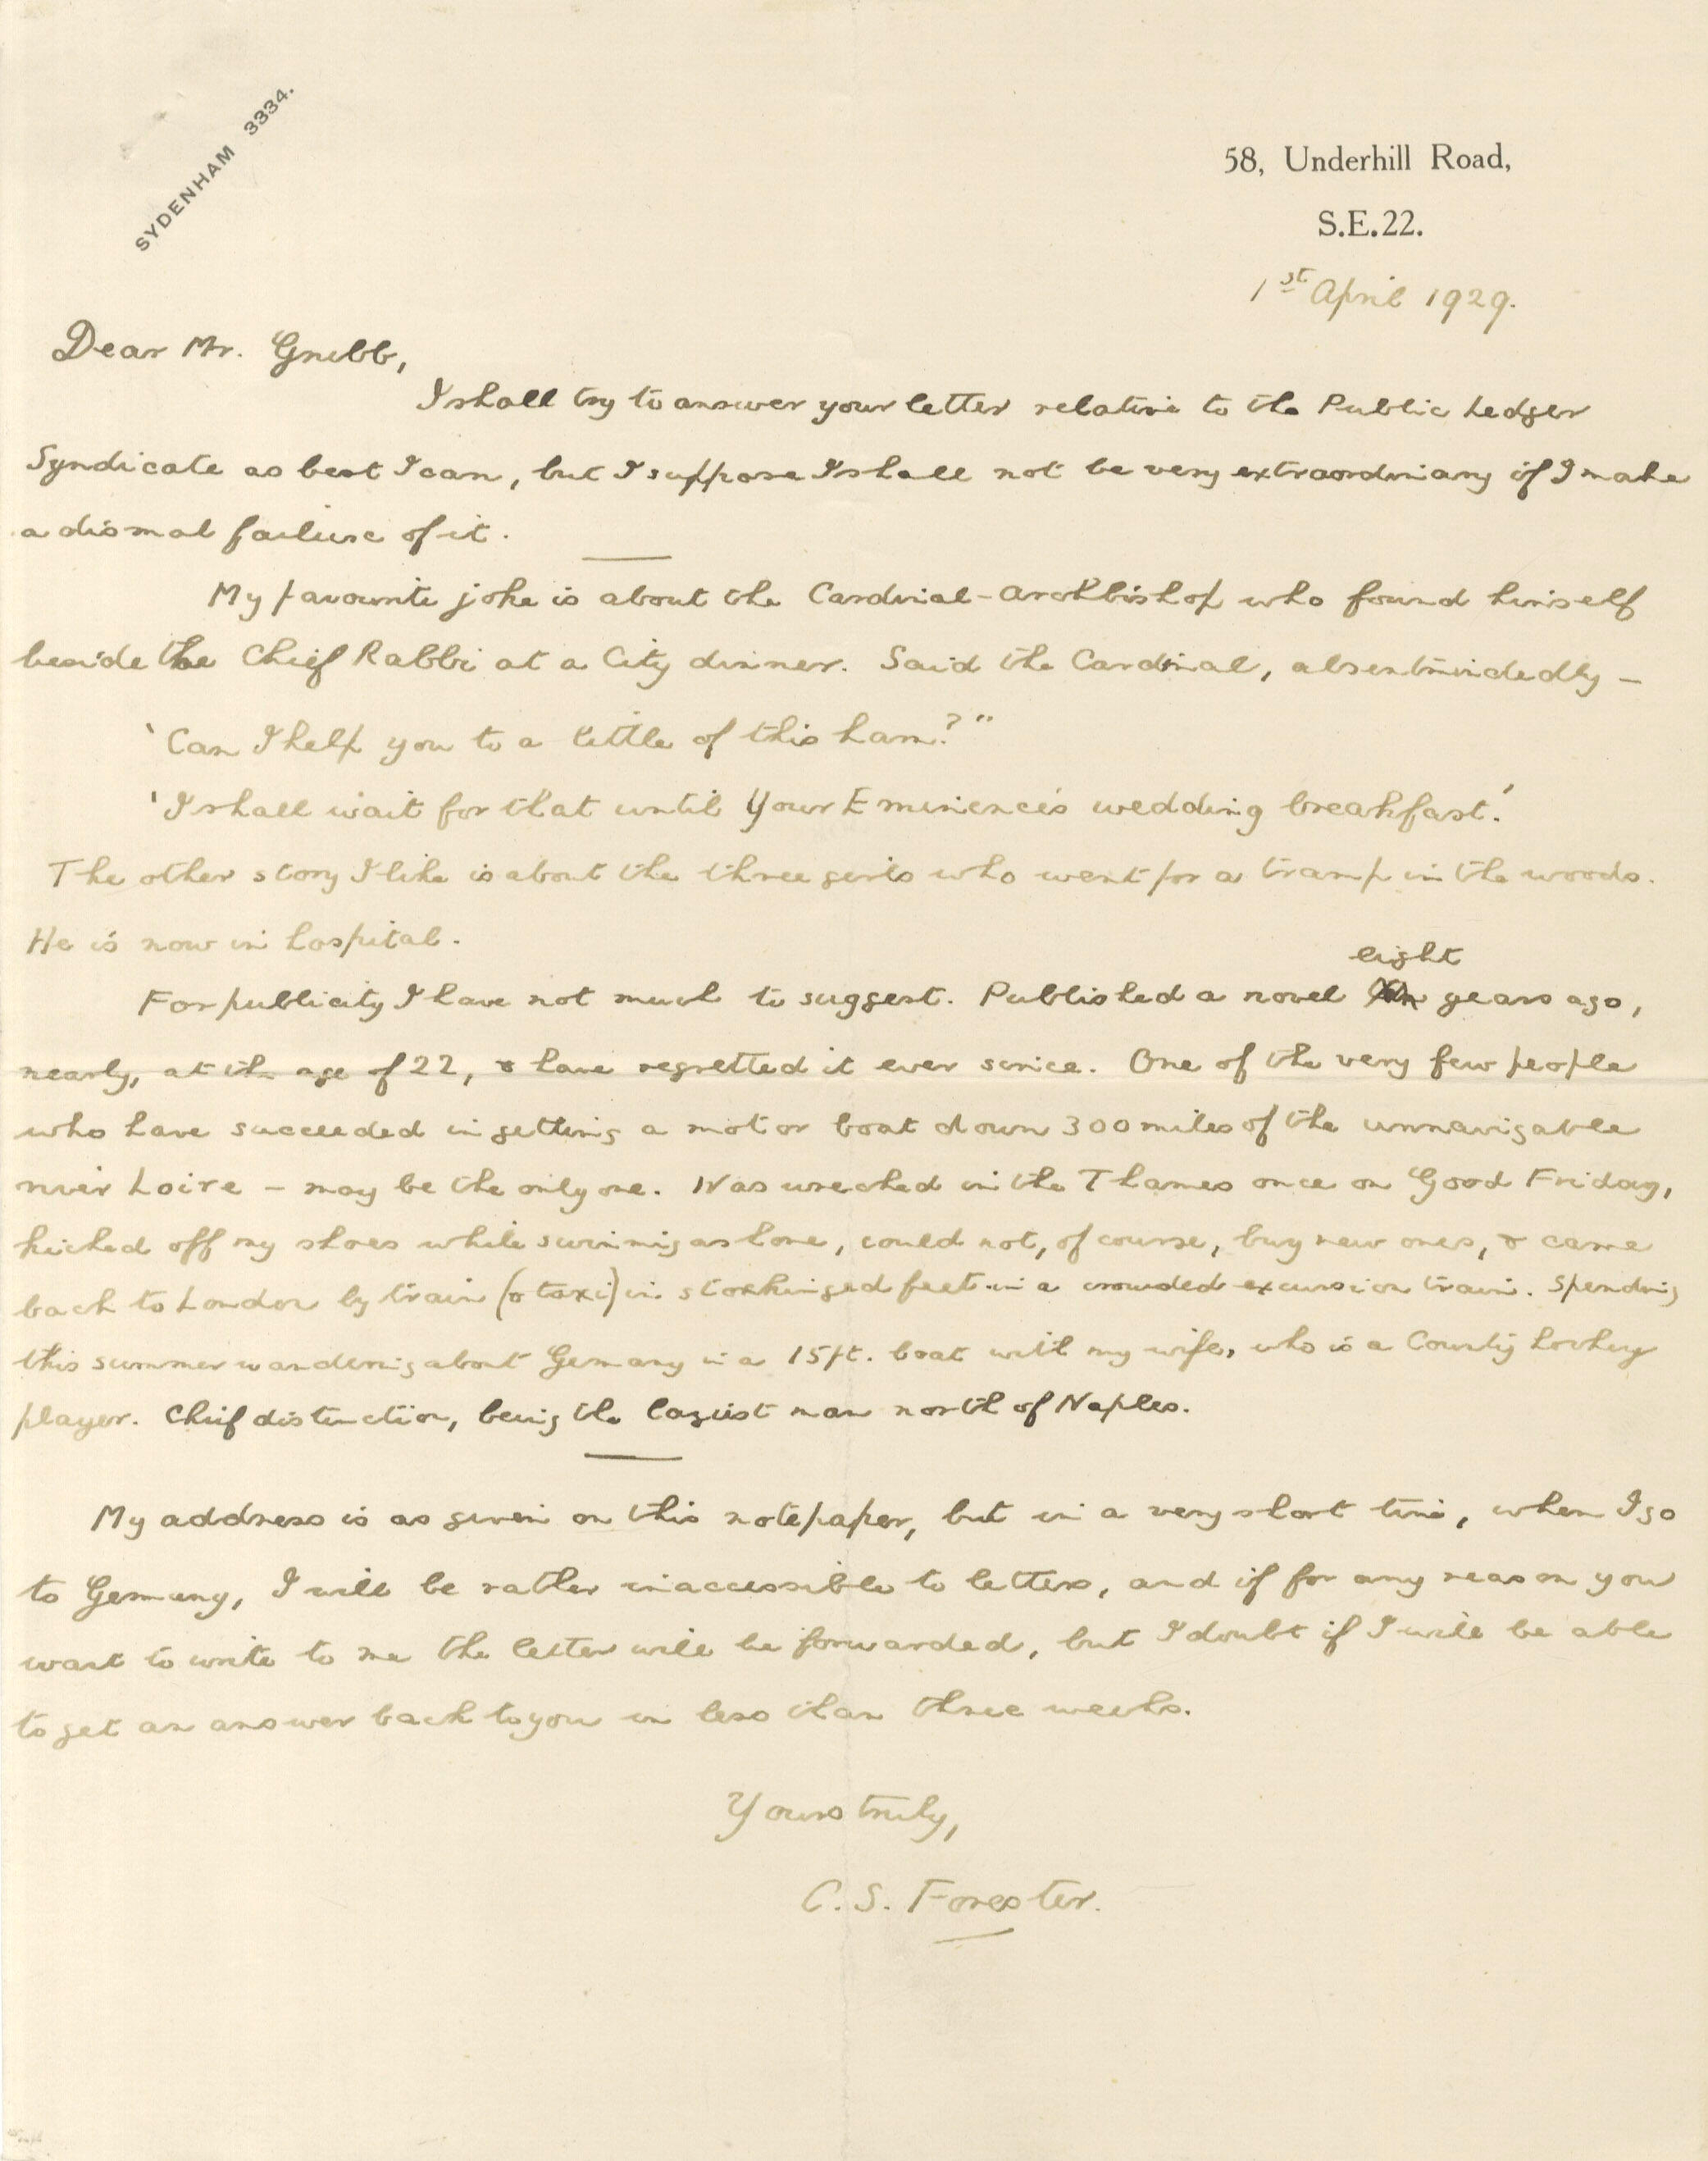 SYDENHAM 3334.
58, Underhill Road,
S.E.22.
1st April 1929.
Dear Mr. Grubb,
I shall try to answer your letter relative to the Public Ledger
Syndicate as best I can, but I suppose I shall not be very extraordinary if I make
a dismal failure of it.
My favourite joke is about the Cardinal-Archbishop who found himself
beside the Chief Rabbi at a City dinner. Said the Cardinal, absentmindedly –
'Can I help you to a little of this ham?"
'I shall wait for that until Your Eminence's wedding breakfast.'
The other story I like is about the three girls who went for a tramp in the woods.
He is now in hospital.
eight
For publicity I have not much to suggest. Published a novel years ago,
nearly, at the age of 22, & have regretted it ever since. One of the very few people
who have succeeded in getting a motor boat down 300 miles of the unnavigable
river Loire – may be the only one. Was wrecked in the Thames once on Good Friday,
kicked off my shoes while swimming ashore, could not, of course, buy new ones, & came
back to London by train (& taxi) in stockinged feet in a crowded excursion train. Spending
this summer wandering about Germany in a 15ft. boat with my wife, who is a County hockey
player. Chief distinction, being the laziest man north of Naples.
My address is as given on this notepaper, but in a very short time, when I go
to Germany, I will be rather inaccessible to letters, and if for any reason you
want to write to me the letter will be forwarded, but I doubt if I will be able
to get an answer back to you in less than three weeks.
Yours truly,
C. S. Forester.